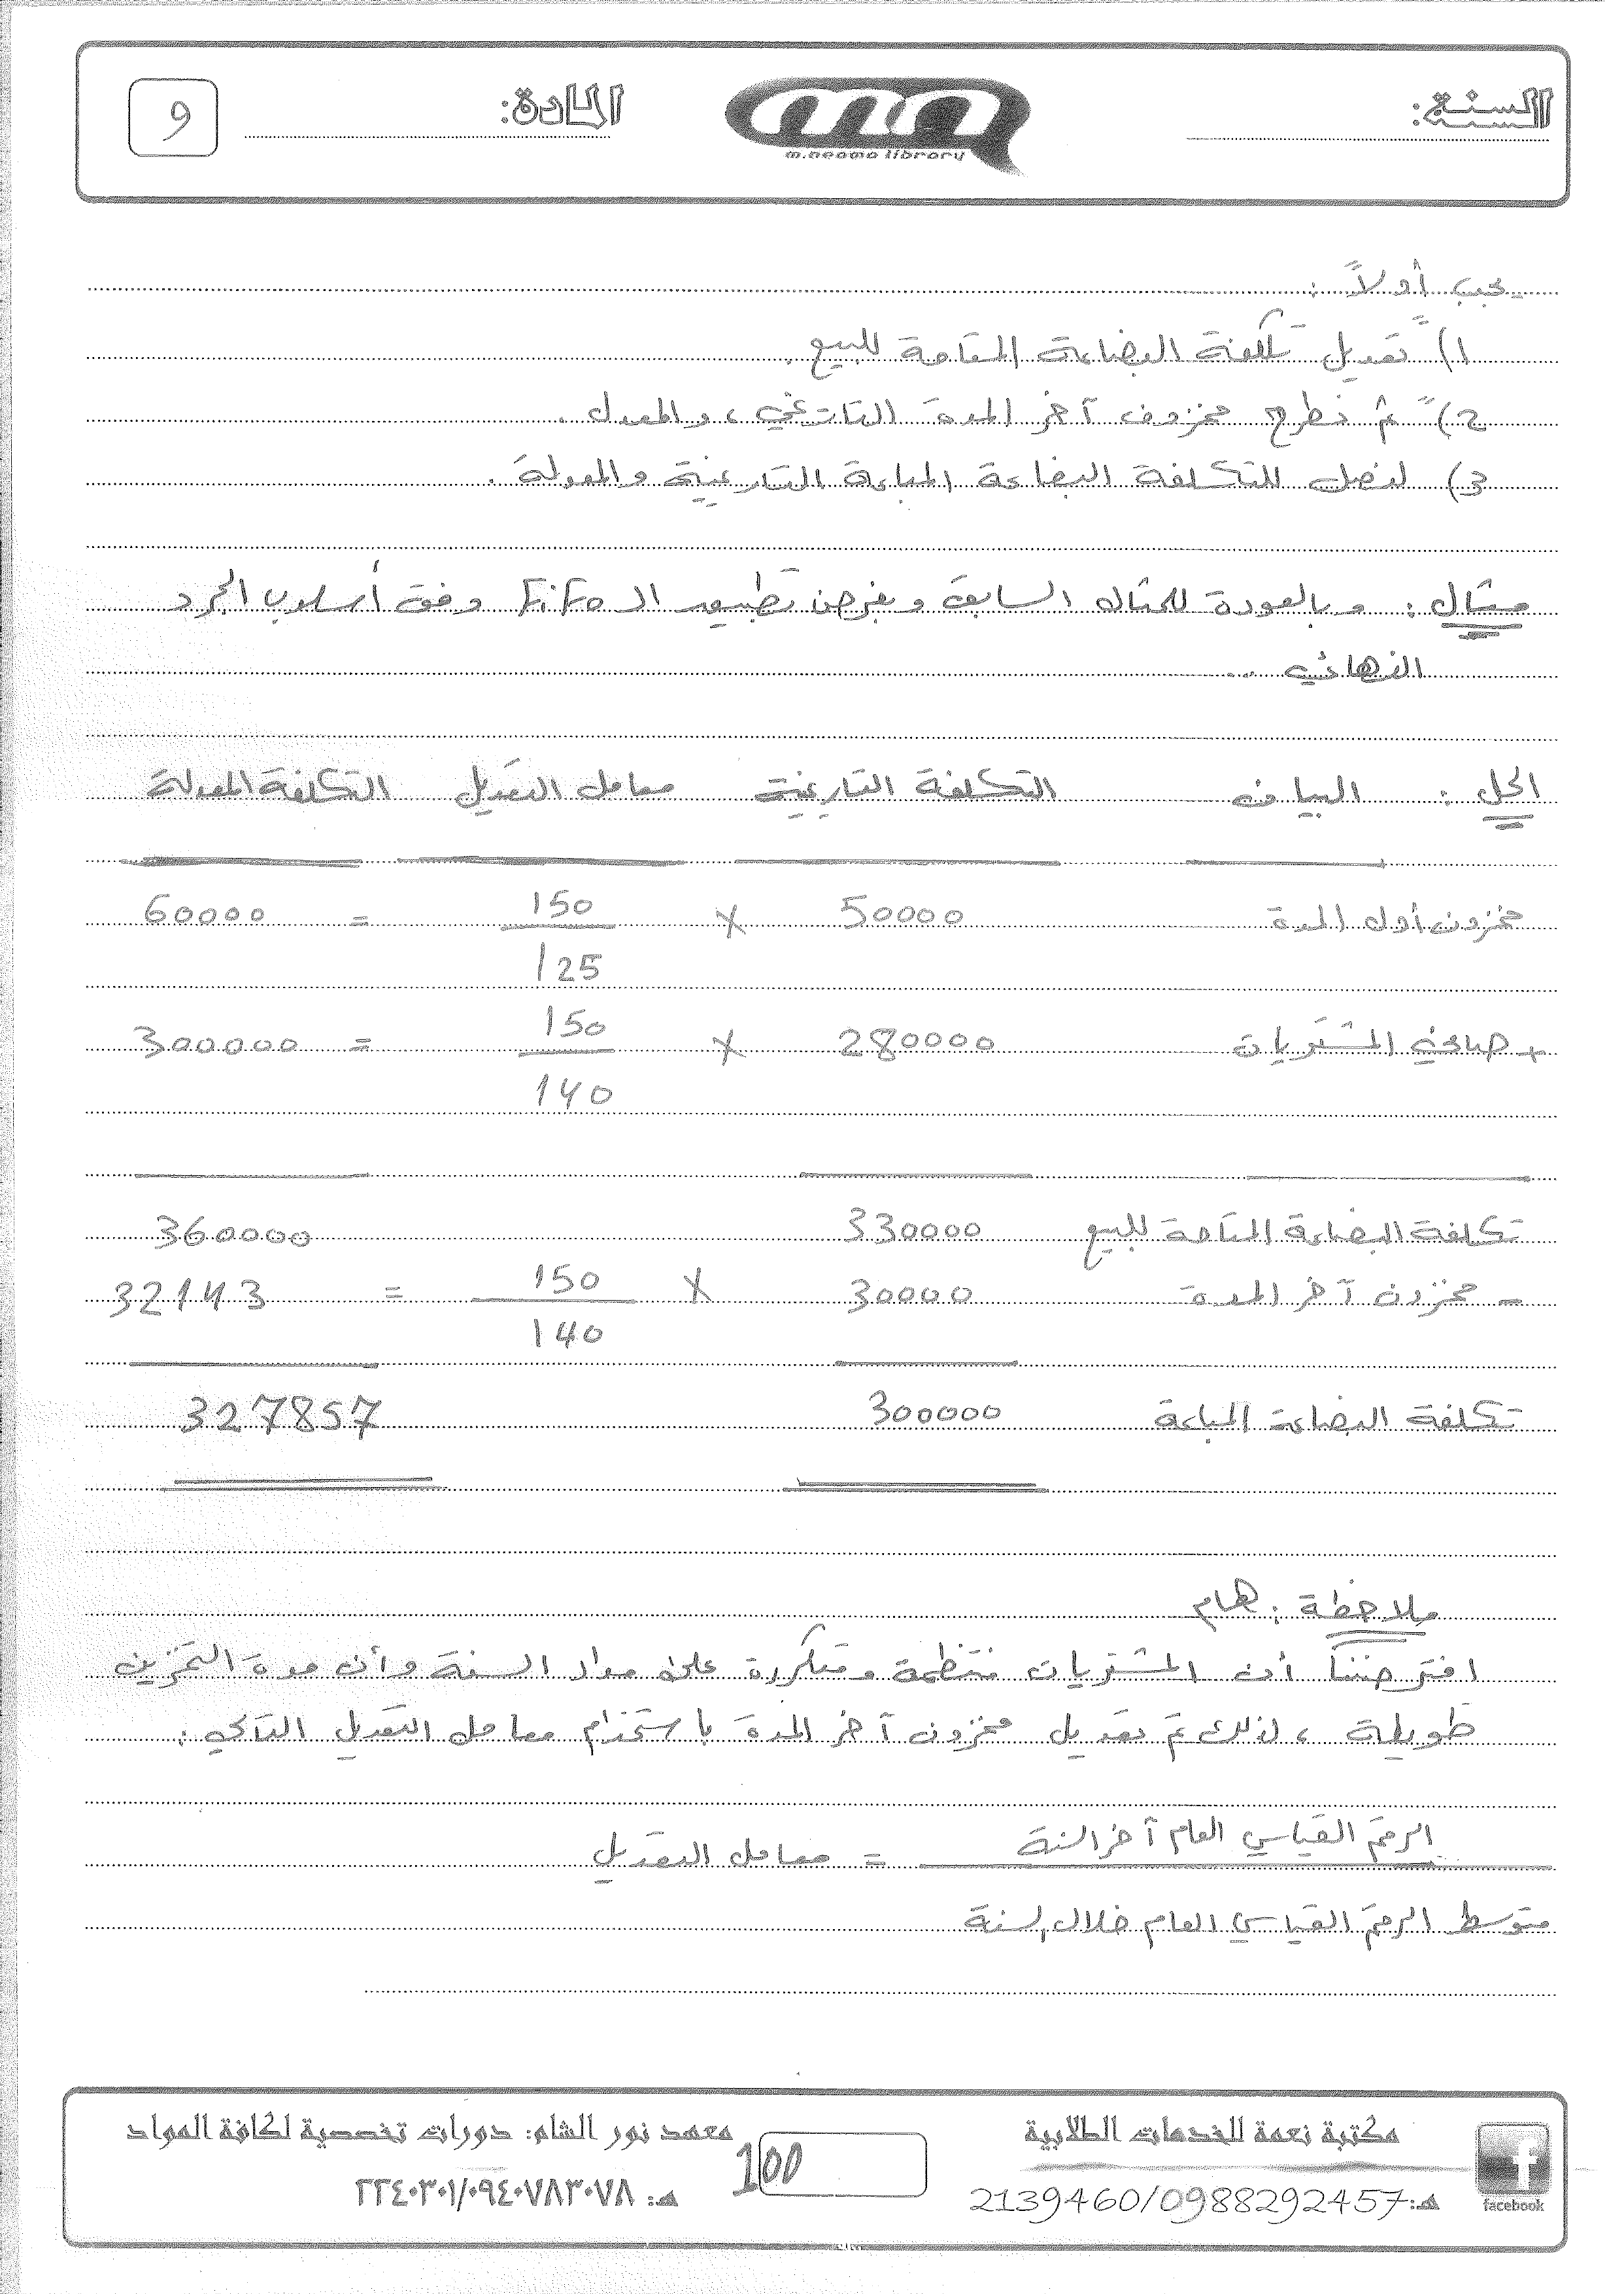 السنة:
m.neama library
المادة:
9
يجب أولاً :
1) تعديل تكلفة البضاعة المتاحة للبيع.
2) ثم نطرح مخزون آخر المدة التاريخي، والمعدل.
3) لنصل للتكلفة البضاعة المباعة التاريخية والمعدلة.
مثال : وبالعودة للمثال السابق وبفرض تطبيق الـ FiFo وفق أسلوب الجرد
النهائي ...
الحل : البيان التكلفة التاريخية معامل التعديل التكلفة المعدلة
مخزون أول المدة 50000 × 150/125 = 60000
+ صافي المشتريات 280000 × 150/140 = 300000
تكلفة البضاعة المتاحة للبيع 330000 360000
- مخزون آخر المدة 30000 × 150/140 = 32143
تكلفة البضاعة المباعة 300000 327857
ملاحظة : هام
افترضنا أن المشتريات منتظمة ومتكررة على مدار السنة وأن مدة التخزين
طويلة ، لذلك تم تعديل مخزون آخر المدة باستخدام معامل التعديل التالي :
الرقم القياسي العام آخر السنة
= معامل التعديل
متوسط الرقم القياسي العام خلال السنة
مكتبة نعمة للخدمات الطلابية
هـ:2139460/0988292457
facebook
100
معهد نور الشام: دورات تخصصية لكافة المواد
هـ: ٢٢٤٠٣٠١/٠٩٤٠٧٨٣٠٧٨